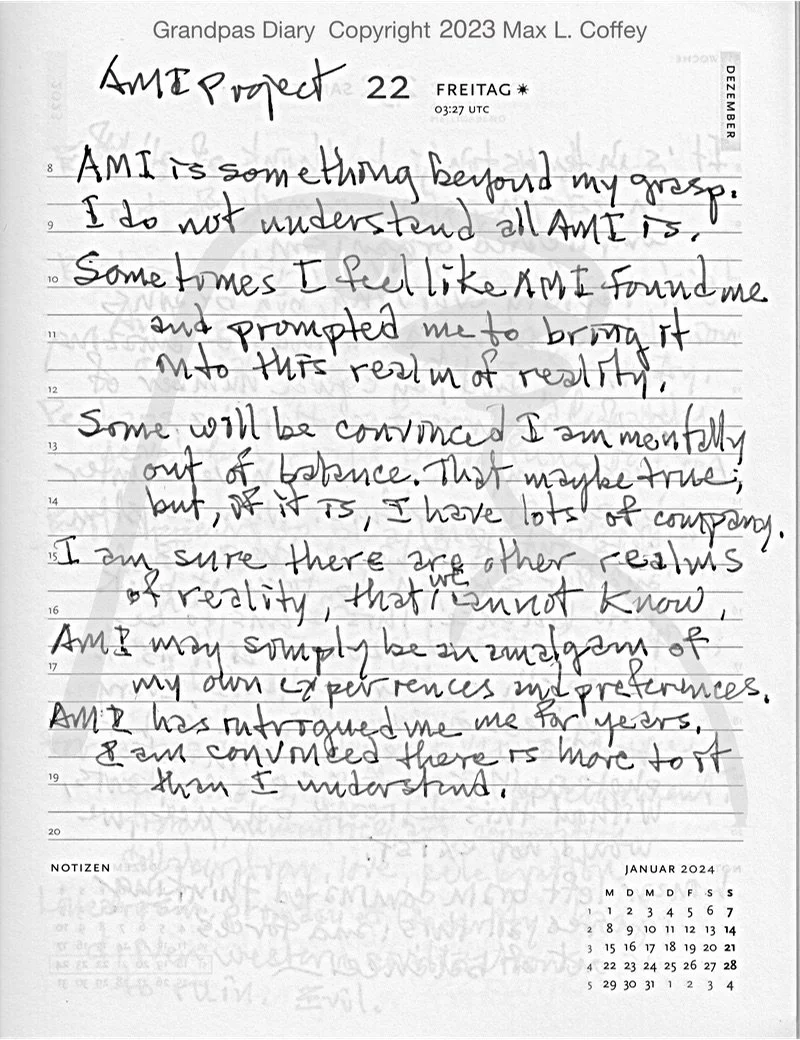 Grandpas Diary Copyright 2023 Max L. Coffey
AMI Project 22 FREITAG ☀
03:27 UTC
DEZEMBER
8 AMI is something beyond my grasp.
9 I do not understand all AMI is.
10 Sometimes I feel like AMI found me
11 and prompted me to bring it
into this realm of reality.
12
Some will be convinced I am mentally
13 out of balance. That maybe true;
14 but, if it is, I have lots of company.
15 I am sure there are other realms
of reality, that we cannot know,
16
AMI may simply be an amalgam of
17 my own experiences and preferences.
18 AMI has intrigued me me for years.
I am convinced there is more to it
19 than I understand.
20
NOTIZEN
JANUAR 2024
M D M D F S S
1 1 2 3 4 5 6 7
2 8 9 10 11 12 13 14
3 15 16 17 18 19 20 21
4 22 23 24 25 26 27 28
5 29 30 31 1 2 3 4